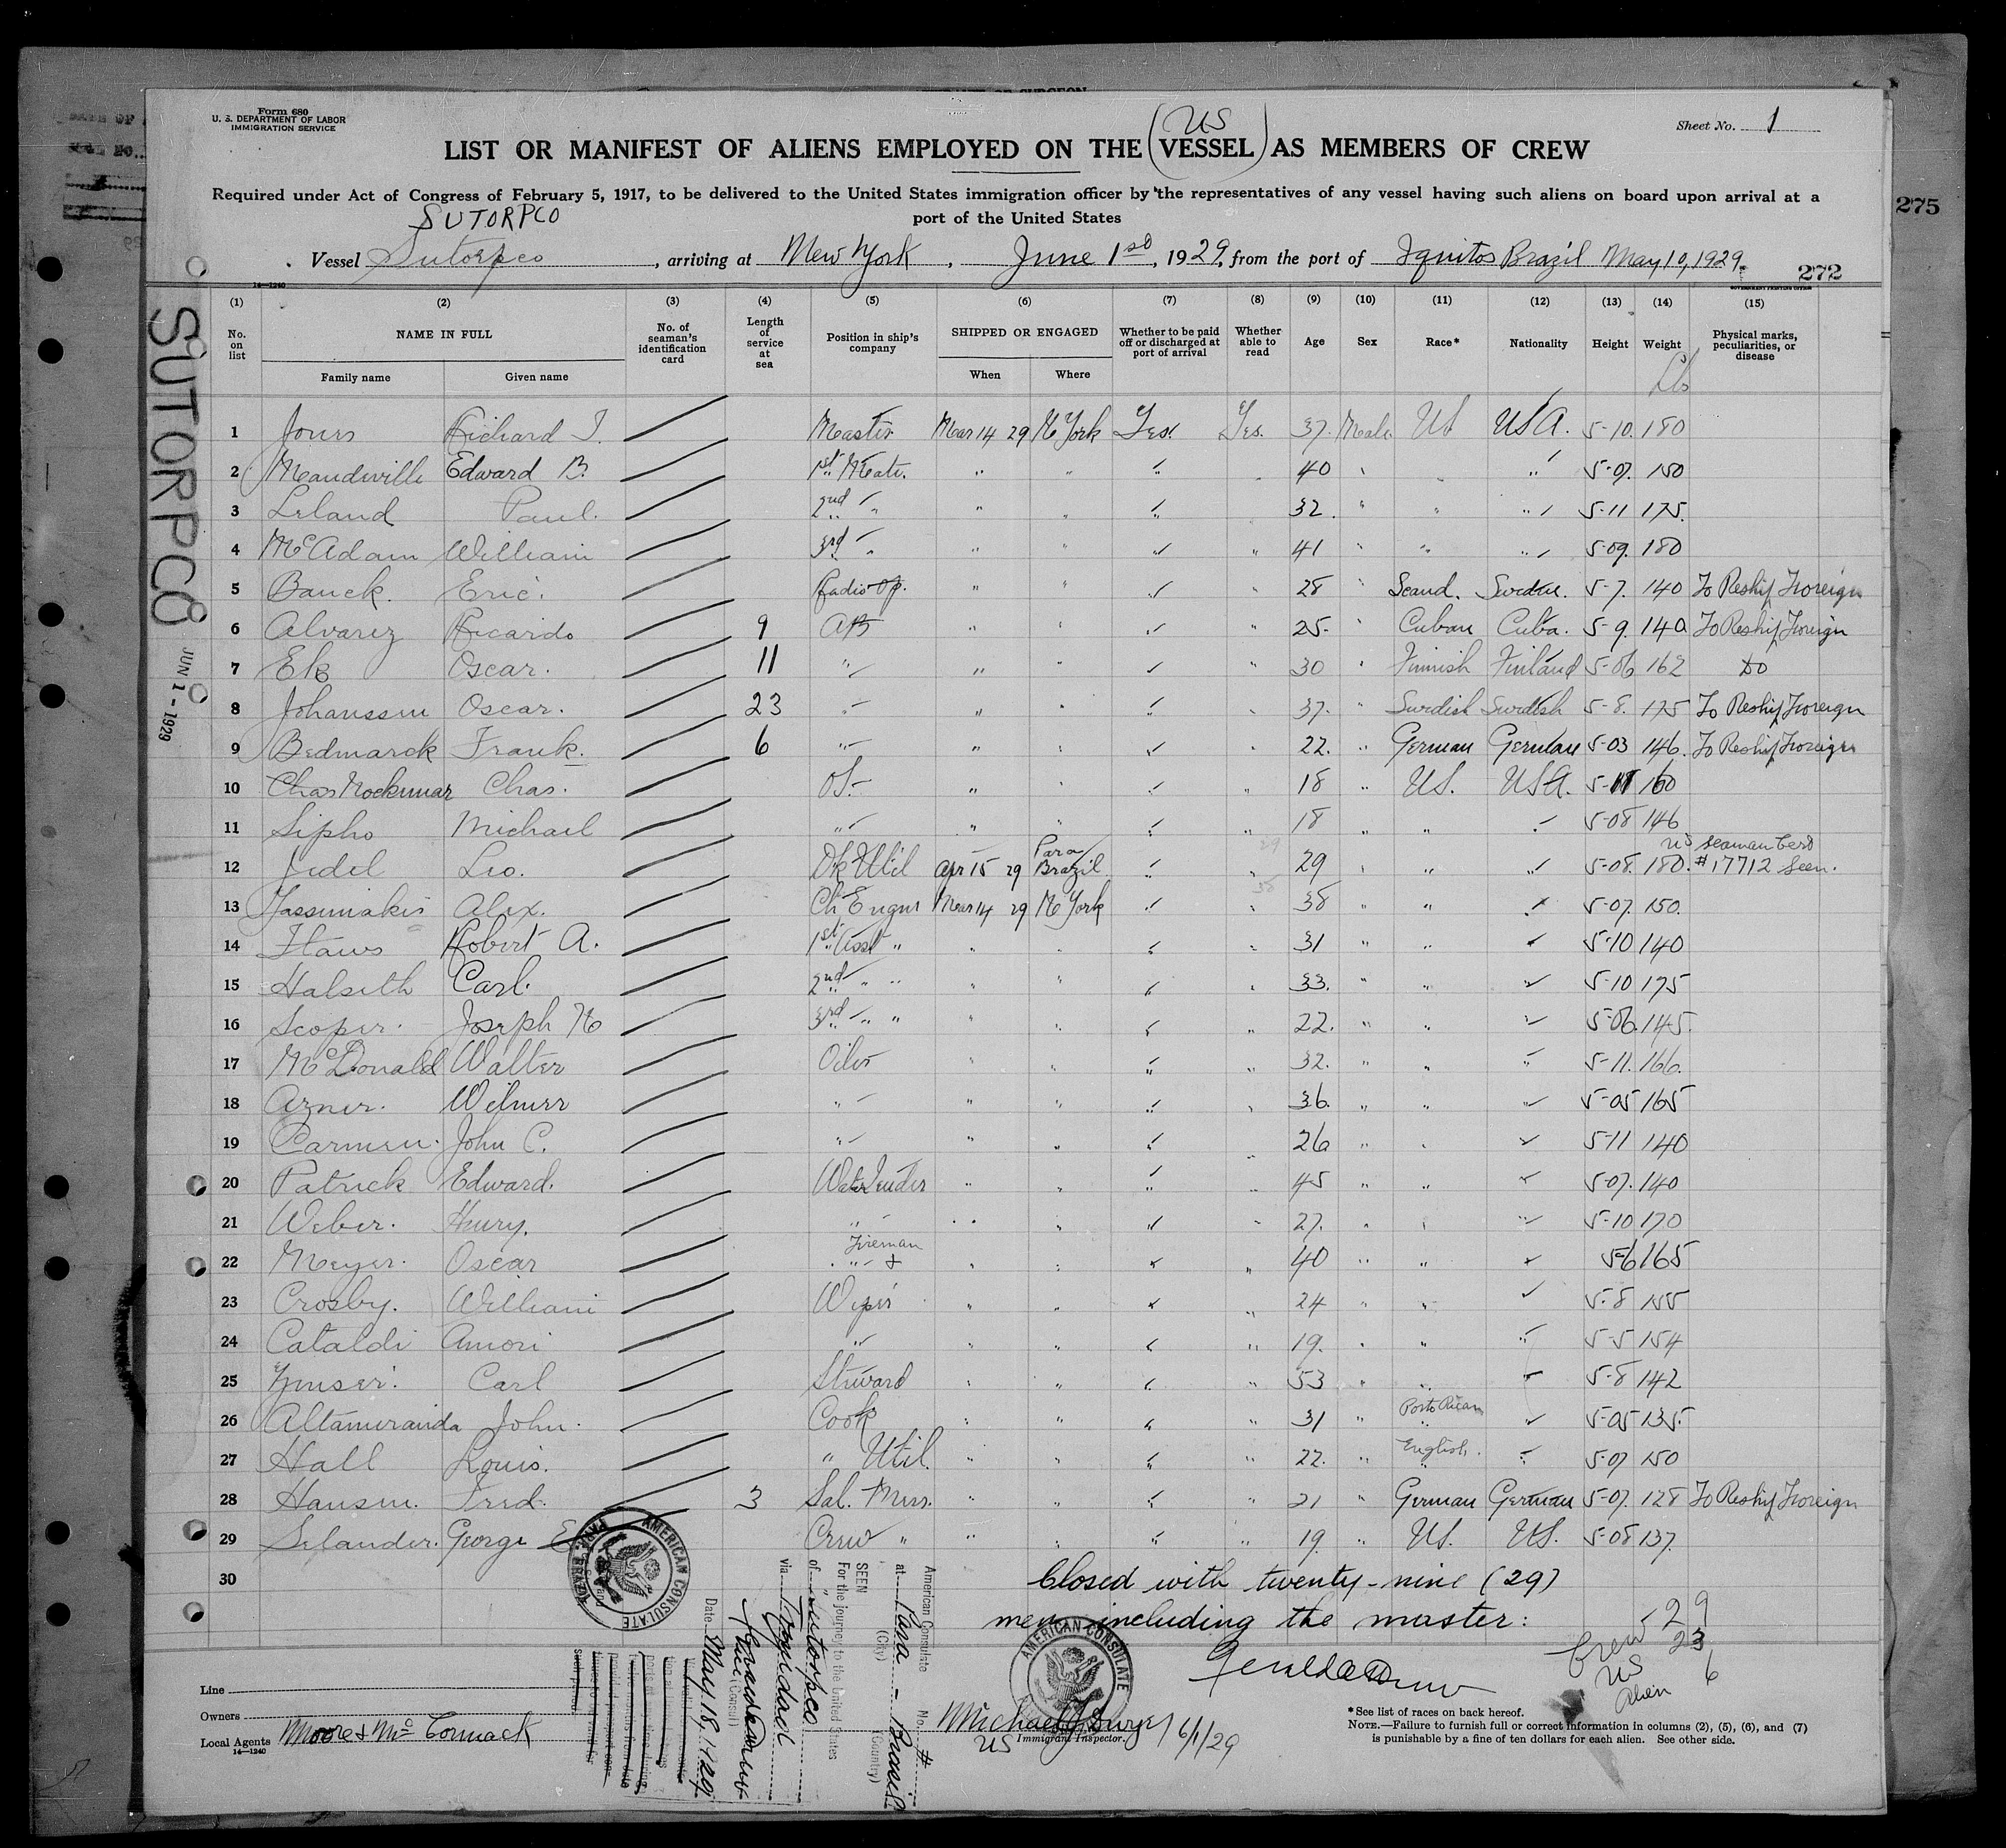 Form 680
U. S. DEPARTMENT OF LABOR
IMMIGRATION SERVICE
Sheet No. 1
US
LIST OR MANIFEST OF ALIENS EMPLOYED ON THE (VESSEL) AS MEMBERS OF CREW
Required under Act of Congress of February 5, 1917, to be delivered to the United States immigration officer by the representatives of any vessel having such aliens on board upon arrival at a
port of the United States
275
SUTORPCO
Vessel Sutorpco, arriving at New York, June 1st, 1929, from the port of Iquitos Brazil May 10, 1929.
272
14—1240
GOVERNMENT PRINTING OFFICE
(1) (2) (3) (4) (5) (6) (7) (8) (9) (10) (11) (12) (13) (14) (15)
No. on list
NAME IN FULL
Family name
Given name
No. of seaman's identification card
Length of service at sea
Position in ship's company
SHIPPED OR ENGAGED
When
Where
Whether to be paid off or discharged at port of arrival
Whether able to read
Age
Sex
Race*
Nationality
Height
Weight
Lbs
Physical marks, peculiarities, or disease
1 Jones Richard T. Master Mar 14 29 N York Yes. Yes. 37. Male. US USA. 5-10. 180
2 Mandeville Edward B. 1st Mate. " " " 40 " " 5-07. 150
3 Leland Paul. 2nd " " " " 32. " " " 5-11 175.
4 McAdam William 3rd " " " " 41 " " " 5-09. 180
5 Banck. Eric. Radio Op. " " " 28 " Scand. Sweden. 5-7. 140 To Reship Foreign
6 Alvarez Ricardo 9 AB " " " " 25. " Cuban Cuba. 5-9. 140 To Reship Foreign
7 Ek Oscar. 11 " " " " 30 " Finnish Finland 5-06 162 Do
8 Johanssen Oscar. 23 " " " " 37. " Swedish Swedish 5-8. 175 To Reship Foreign
9 Bedmarck Frank. 6 " " " " 22. " German German 5-03 146. To Reship Foreign
10 Chas Nockumar Chas. OS. " " " " 18 " US. USA. 5-11 160
11 Sipho Michael " " " " " 18 " " " 5-08 146
12 Jedel Leo. Dk Util Apr 15 29 Para Brazil " " 29 " " " 5-08. 180. US Seaman Cert #17712 Seen.
13 Jassimakis Alex. Ch Engnr Mar 14 29 N York " " 38 " " " 5-07. 150.
14 Flaws Robert A. 1st Asst " " " " " 31 " " " 5-10 140
15 Halseth Carl. 2nd " " " " " " 33. " " " 5-10 175
16 Scoper. Joseph N 3rd " " " " " " 22. " " " 5-06. 145.
17 McDonald Walter Oiler " " " " 32. " " " 5-11. 166.
18 Azner. Wilmer " " " " " 36. " " " 5-05 165
19 Carmen. John C. " " " " 26 " " " 5-11 140
20 Patrick Edward. Water Tender " " " " 45 " " " 5-07. 140
21 Weber. Henry. " " " " " 27. " " " 5-10 170
22 Meyer. Oscar Fireman " " " " " 40 " " " 5-6 165
23 Crosby. William Wiper " " " " 24 " " 5-8 155
24 Cataldi Amori " " " " " 19. " " " 5-5 154
25 Carl Steward " " " " 53 " " " 5-8 142
26 Altamiranda John. Cook " " " " 31 " Porto Rican " 5-05 135.
27 Hall Louis. " Util. " " " " 22. " English. " 5-07 150
28 Hansen. Fred. 3 Sal. Mess. " " " " 21 " German German 5-07. 128 To Reship Foreign
29 Selander. George E. Crew " " " " " 19. " US. US. 5-08 137.
30
Closed with twenty-nine (29)
men including the master:
Crew 29
US 23
Alien 6
SUTORPCO
JUN 1 - 1929
AMERICAN CONSULATE
PARA, BRAZIL
American Consulate No. #
at Para - Brasil
(City) (Country)
SEEN
For the journey to the United States
of "Sutorpco"
via Trinidad
Vice (Consul)
Date May 18, 1929
AMERICAN CONSULATE
Line
Owners
Local Agents Moore & McCormack
14—1240
Michael J Dwyer 6/1/29
US Immigrant Inspector.
*See list of races on back hereof.
NOTE.—Failure to furnish full or correct information in columns (2), (5), (6), and (7)
is punishable by a fine of ten dollars for each alien. See other side.